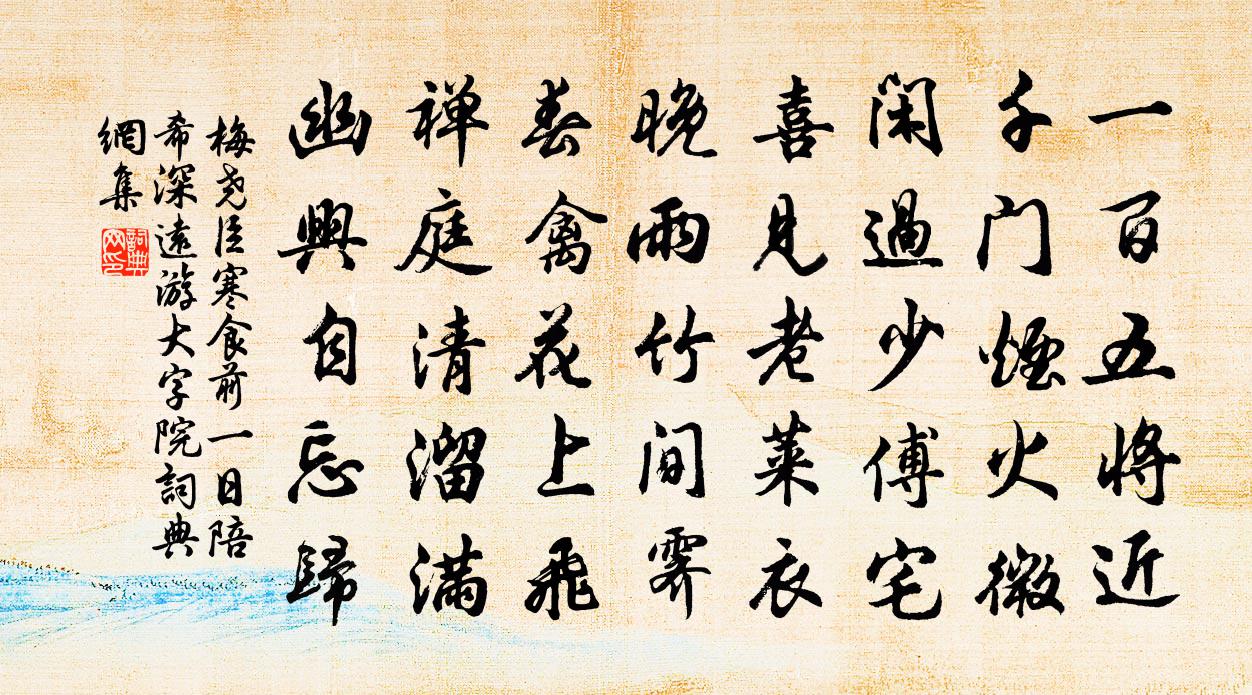 一百五将近
千门煙火微
闲過少傅宅
喜見老莱衣
晚雨竹间霁
春禽花上飛
禅庭清溜满
幽興自忘歸
梅尧臣寒食前一日陪
希深遠游大字院詞典
網集
詞典
网印